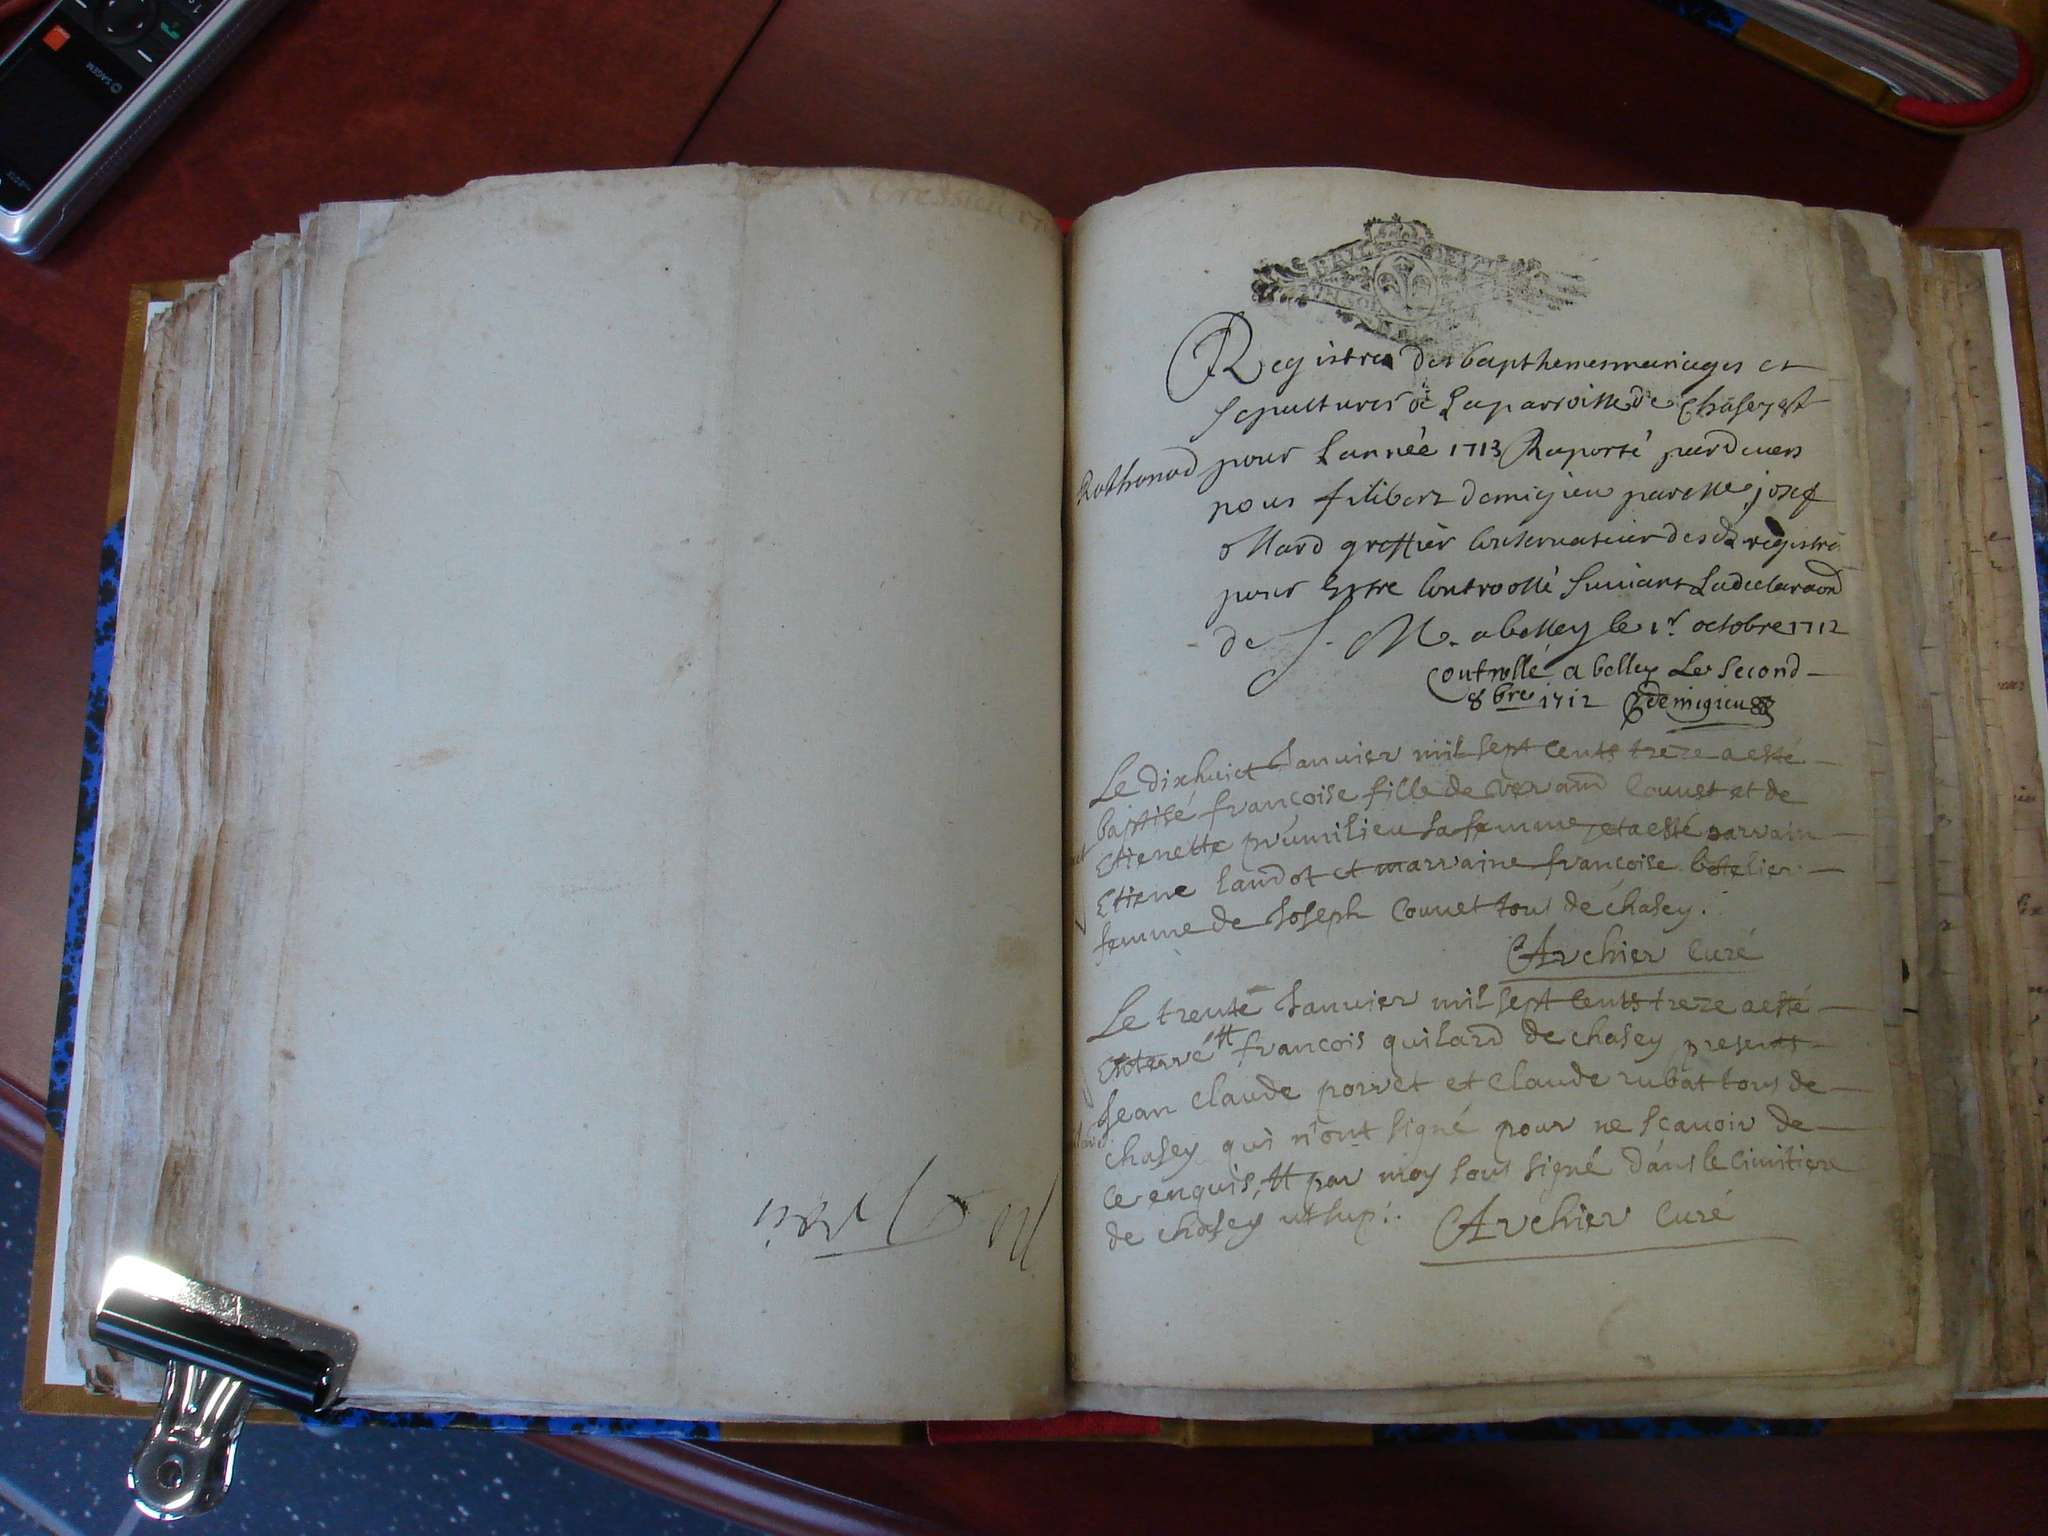 SAGEM
Registre des bapthemes mariages et
sepultures de La parroisse de Chasey et
Rothonod pour Lannéé 1713 Raporté pardevers
nous filibert demigieu par Me josef
ollard greffier Conservateur desd registre
pour Estre Controollé suivant La declaraon
de S. M. a belley le 1r octobre 1712
Controllé a belley Le second
8bre 1712 Demigieu
Le dixhuict Janvier mil sept cents treze a esté
baptisé françoise fille de Couvet et de
Etienette prumilieu sa femme et a esté parrain
Etiene Landot et marraine françoise botelier
femme de Joseph Couvet tous de chasey.
Archier Curé
Le trente Janvier mil sept cents treze a esté
Enterré # francois quilard de chasey presents
Jean claude porret et Claude rubat tous de
chasey qui n'ont signé pour ne scavoir de
ce enquis, # par moy sous signé dans le cimitiere
de chasey ut sup:. Archier Curé